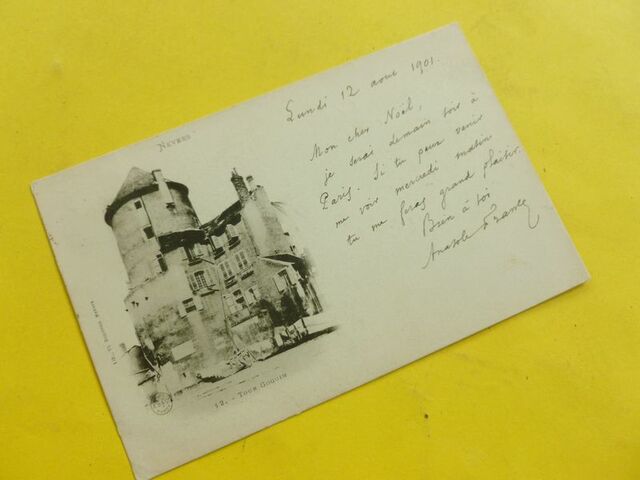 NEVERS
Lundi 12 aout 1901.
Mon cher Noël,
je serai demain soir à
Paris. Si tu peux venir
me voir mercredi matin
tu me feras grand plaisir.
Bien à toi
Anatole France
12. - TOUR GOGUIN